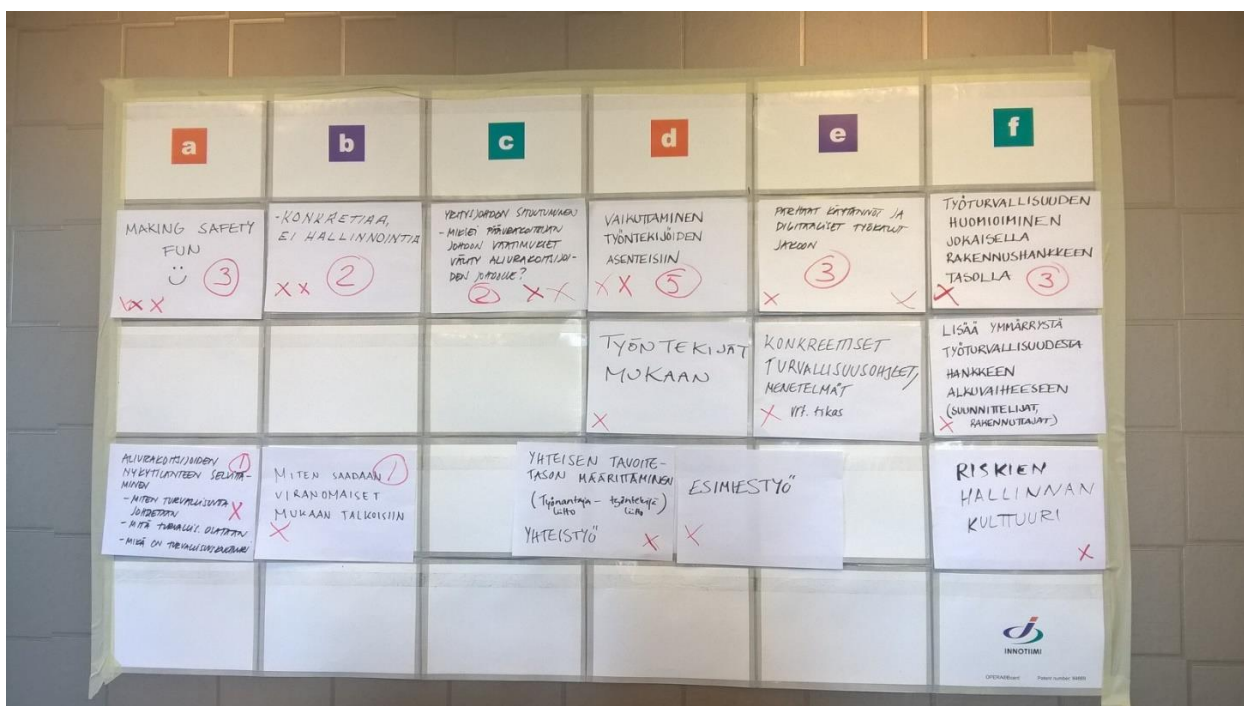 a
b
c
d
e
f
MAKING SAFETY
FUN
3
- KONKRETIAA,
EI HALLINNOINTIA
2
YRITYSJOHDON SITOUTUMINEN
- MIKSEI PÄÄURAKOITSIJAN
JOHDON VAATIMUKSET
VÄLITY ALIURAKOITSIJOI-
DEN JOHDOLLE?
2
VAIKUTTAMINEN
TYÖNTEKIJÖIDEN
ASENTEISIIN
5
PARHAAT KÄYTÄNNÖT JA
DIGITAALISET TYÖKALUT
JAKOON
3
TYÖTURVALLISUUDEN
HUOMIOIMINEN
JOKAISELLA
RAKENNUSHANKKEEN
TASOLLA
3
TYÖNTEKIJÄT
MUKAAN
KONKREETTISET
TURVALLISUUSOHJEET,
MENETELMÄT
vrt. tikas
LISÄÄ YMMÄRRYSTÄ
TYÖTURVALLISUUDESTA
HANKKEEN
ALKUVAIHEESEEN
(SUUNNITTELIJAT,
RAKENNUTTAJAT)
ALIURAKOITSIJOIDEN
NYKYTILANTEEN SELVITTÄ-
MINEN
1
- MITEN TURVALLISUUTTA
JOHDETAAN
- MITÄ TURVALLIS.
- MIKÄ ON
MITEN SAADAAN
VIRANOMAISET
MUKAAN TALKOISIIN
1
YHTEISEN TAVOITE-
TASON MÄÄRITTÄMINEN
(Työnantaja- työntekijä)
liitto liitto
YHTEISTYÖ
ESIMIESTYÖ
RISKIEN
HALLINNAN
KULTTUURI
INNOTIIMI
OPERABoard Patent number